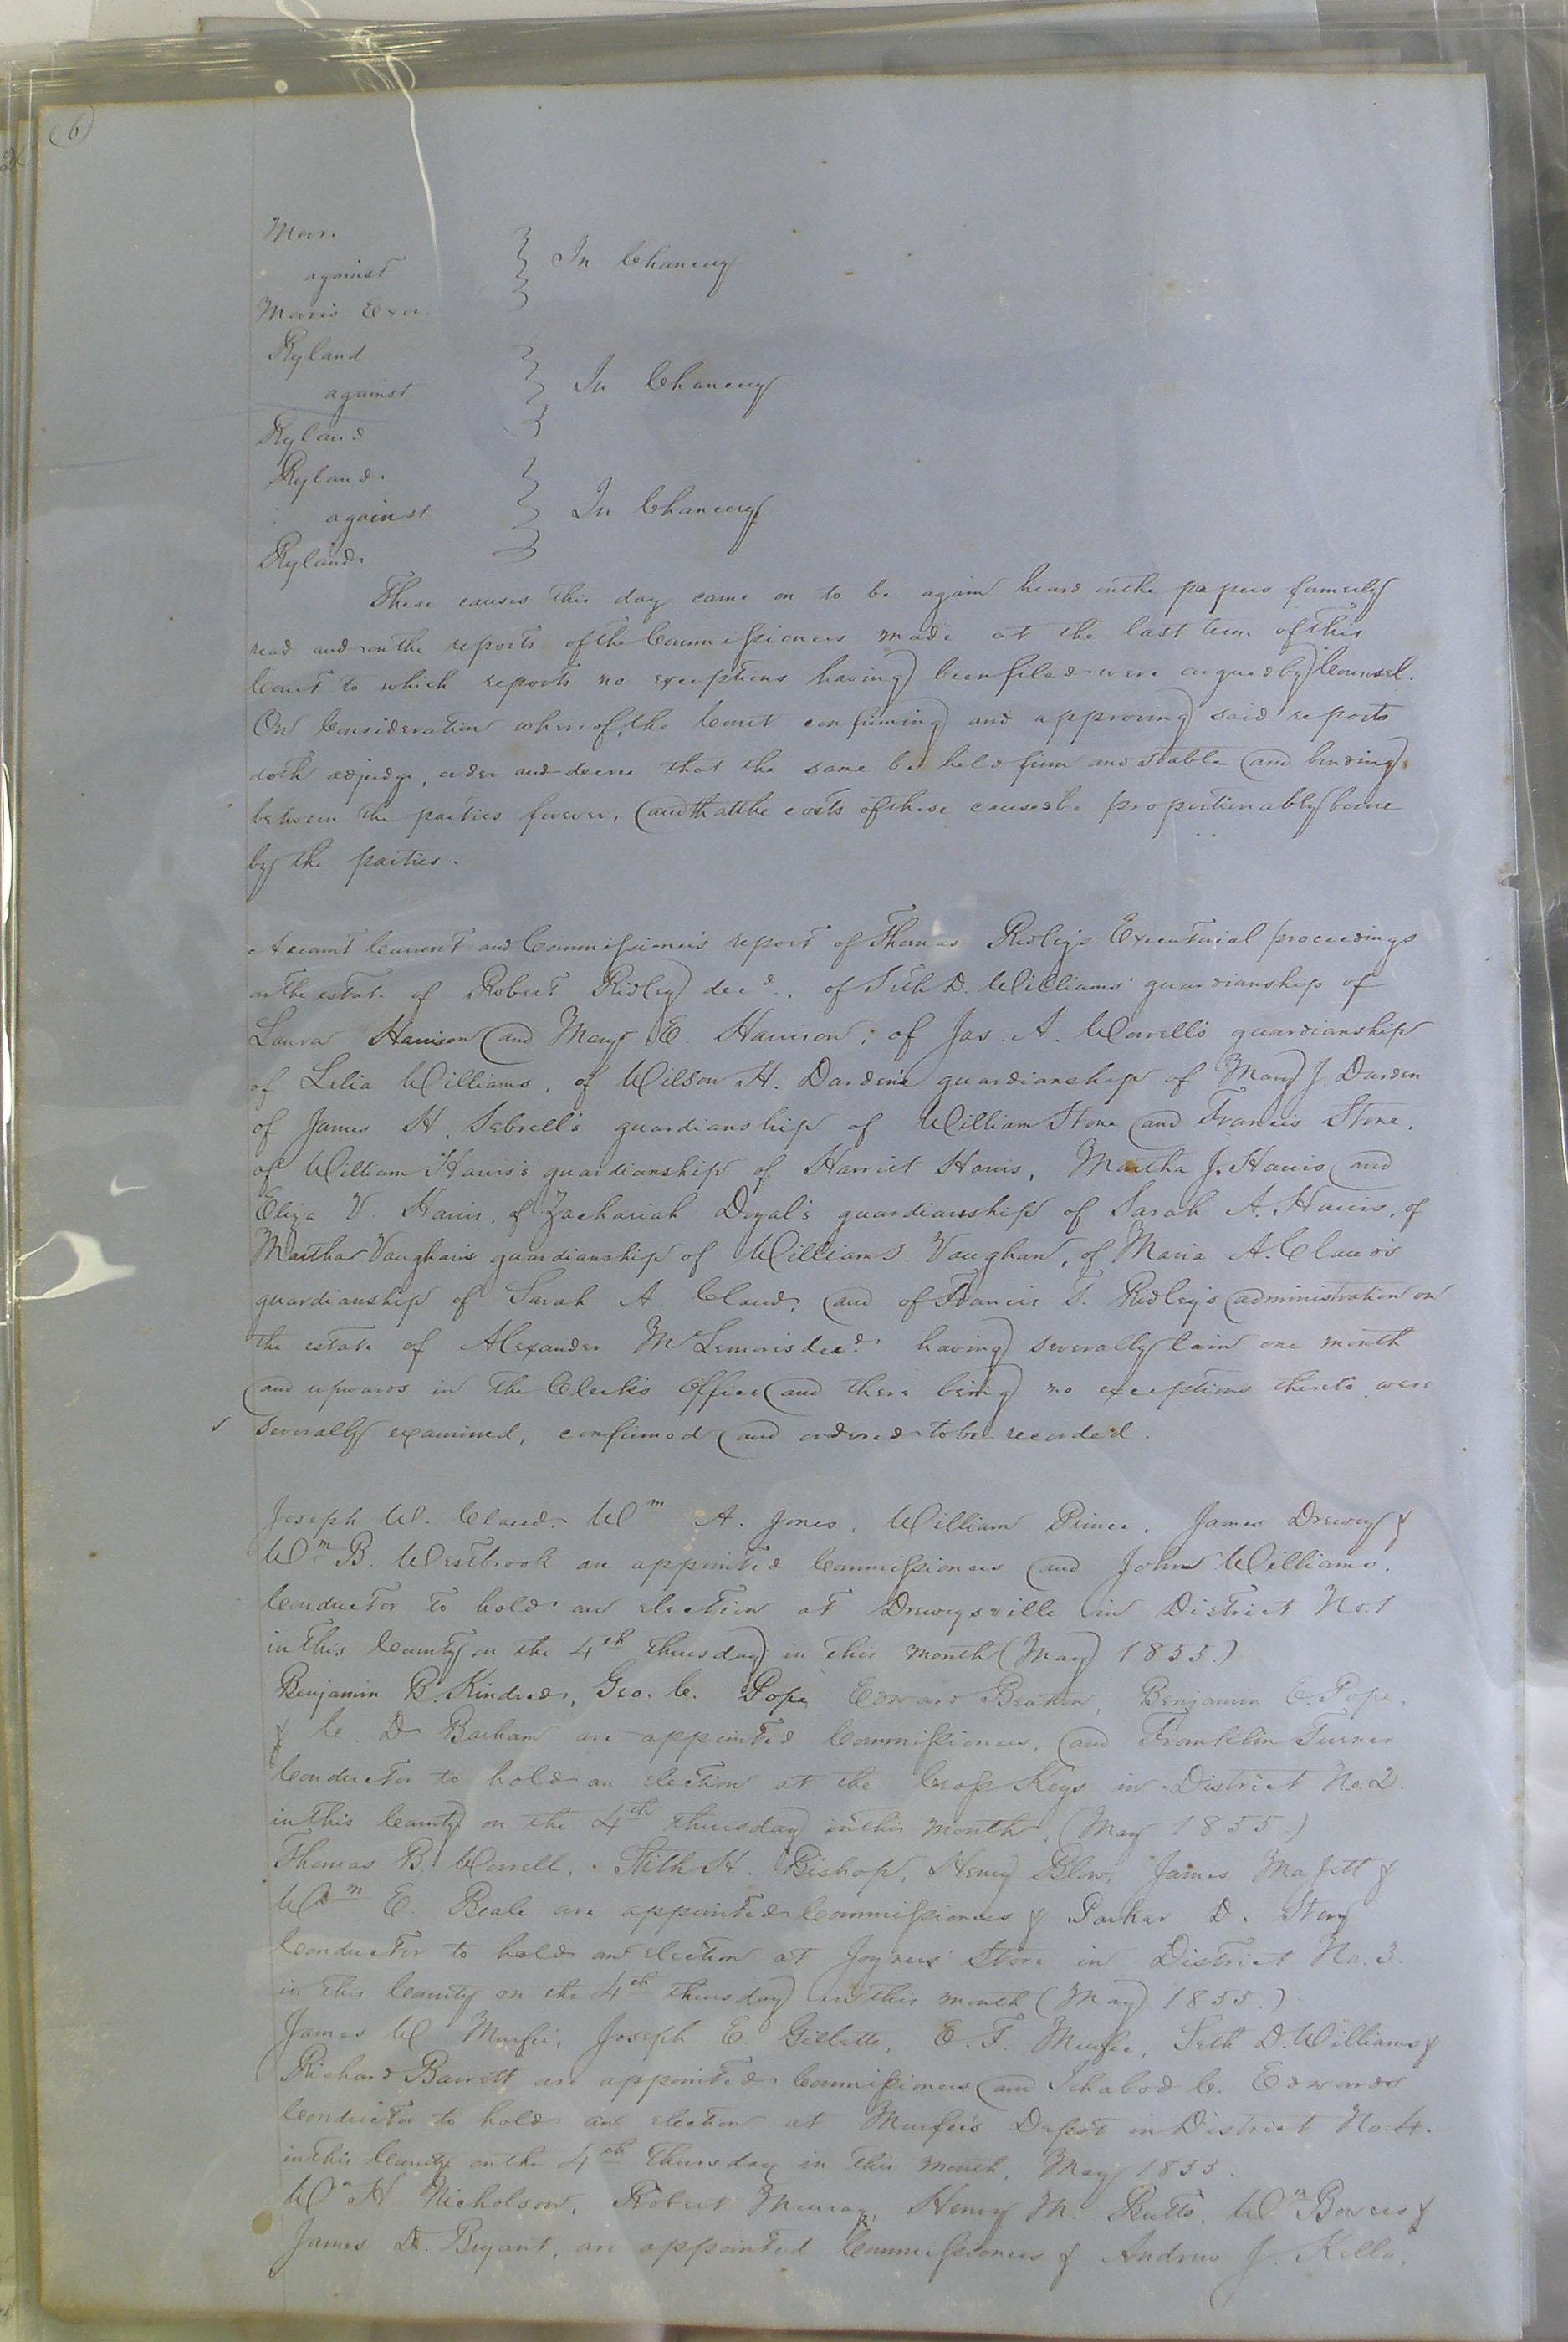 (6)
Moore
against } In Chancery
Moore's Exor.
Ryland
against } In Chancery
Ryland
Ryland
against } In Chancery
Ryland
These causes this day came on to be again heard on the papers formerly
read and on the reports of the Commissioners made at the last term of this
Court to which reports no exceptions having been filed were argued by Counsel.
On Consideration whereof, the Court confirming and approving said reports
doth adjudge, order and decree that the same be held firm and stable and binding
between the parties forever, and that the costs of these causes be proportionably borne
by the parties.
Account Current and Commissioner's report of Thomas Ridley's Executorial proceedings
on the estate of Robert Ridley decd., of Seth D. Williams' guardianship of
Laura Harrison and Mary E. Harrison; of Jas. A. Worrell's guardianship
of Lelia Williams, of Wilson H. Darden's guardianship of Mary J. Darden
of James H. Sebrell's guardianship of William Stone and Francis Stone,
of William Harris's guardianship of Harriet Harris, Martha J. Harris and
Eliza V. Harris, of Zachariah Doyal's guardianship of Sarah A. Harris, of
Martha Vaughan's guardianship of William S. Vaughan, of Maria A. Claud's
guardianship of Sarah A Claud, and of Francis T. Ridley's administration on
the estate of Alexander McLemore's decd. having severally lain one month
and upwards in the Clerk's Office and there being no exceptions thereto were
severally examined, confirmed and ordered to be recorded.
Joseph W. Claud, Wm A. Jones, William Prince, James Drewry &
Wm B. Westbrook are appointed Commissioners and John Williams,
Conductor to hold an election at Drewrysville in District No. 1
in this County on the 4th Thursday in this month (May 1855.)
Benjamin B. Kindred, Geo. C. Pope Edward Beaton, Benjamin E. Pope,
& C. D. Barham are appointed Commissioners, and Franklin Turner
Conductor to hold an election at the Cross Keys in District No. 2.
in this County on the 4th Thursday in this month, (May 1855.)
Thomas B. Worrell, Stith H. Bishop, Henry Blow, James Maffitt &
Wm E. Beale are appointed Commissioners & Parker D. Story
Conductor to hold an election at Joyners Store in District No. 3.
in this County on the 4th Thursday in this month (May 1855.)
James W. Murfee, Joseph E. Gillette, E. T. Murfee, Seth D. Williams &
Richard Barrett are appointed Commissioners and Ichabod C. Edwards
Conductor to hold an election at Murfee's Depot in District No. 4.
in this County on the 4th Thursday in this month, May 1855.
Wm H. Nicholson, Robert Murray, Henry M. Butts, Wm Bowers &
James D. Bryant, are appointed Commissioners & Andrew J. Kello,